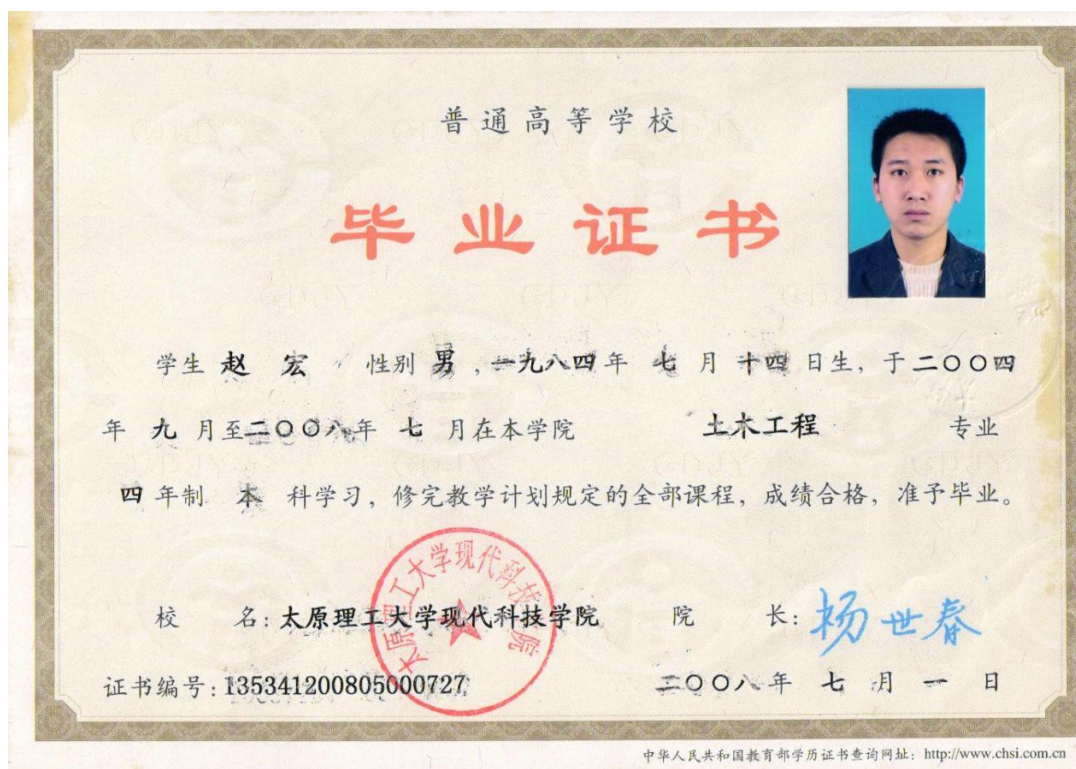 普通高等学校
毕业证书
学生 赵 宏 性别 男，一九八四年 七 月 十四 日生，于二〇〇四
年 九 月至二〇〇八年 七 月在本学院 土木工程 专业
四 年制 本 科学习，修完教学计划规定的全部课程，成绩合格，准予毕业。
太原理工大学现代科技学院
校 名：太原理工大学现代科技学院 院 长：杨世春
证书编号：135341200805000727 二〇〇八年 七 月 一 日
中华人民共和国教育部学历证书查询网址：http://www.chsi.com.cn